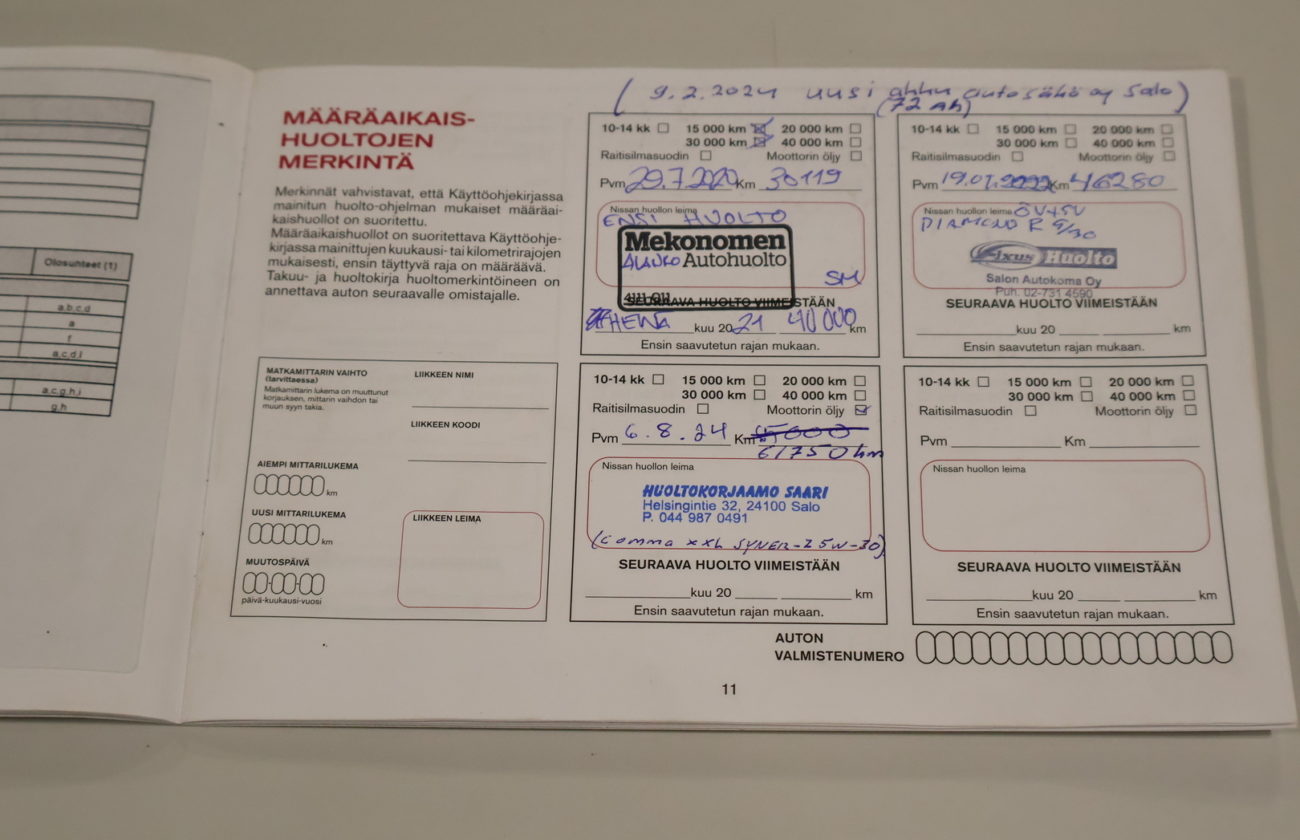 Olosuhteet (1)
a,b,c,d
a
f
a,c,d,i
a,c,g,h,i
g,h
MÄÄRÄAIKAIS-
HUOLTOJEN
MERKINTÄ
Merkinnät vahvistavat, että Käyttöohjekirjassa
mainitun huolto-ohjelman mukaiset määräai-
kaishuollot on suoritettu.
Määräaikaishuollot on suoritettava Käyttöohje-
kirjassa mainittujen kuukausi- tai kilometrirajojen
mukaisesti, ensin täyttyvä raja on määräävä.
Takuu- ja huoltokirja huoltomerkintöineen on
annettava auton seuraavalle omistajalle.
MATKAMITTARIN VAIHTO
(tarvittaessa)
Matkamittarin lukema on muuttunut
korjauksen, mittarin vaihdon tai
muun syyn takia.
AIEMPI MITTARILUKEMA
km
UUSI MITTARILUKEMA
km
MUUTOSPÄIVÄ
päivä-kuukausi-vuosi
LIIKKEEN NIMI
LIIKKEEN KOODI
LIIKKEEN LEIMA
(9.2.2024 uusi akku autosähkö oy Salo)
(72 Ah)
10-14 kk 15 000 km 20 000 km
30 000 km 40 000 km
Raitisilmasuodin Moottorin öljy
Pvm 29.7.2020 Km 30119
Nissan huollon leima
ENSI HUOLTO
Mekonomen
Autohuolto
SM
4111-011
SEURAAVA HUOLTO VIIMEISTÄÄN
HEINÄ kuu 20 21 40 000 km
Ensin saavutetun rajan mukaan.
10-14 kk 15 000 km 20 000 km
30 000 km 40 000 km
Raitisilmasuodin Moottorin öljy
Pvm 19.07. Km 46280
Nissan huollon leima ÖV+SV
Fixus Huolto
Salon Autokoma Oy
Puh. 02-731 4590
SEURAAVA HUOLTO VIIMEISTÄÄN
kuu 20 km
Ensin saavutetun rajan mukaan.
10-14 kk 15 000 km 20 000 km
30 000 km 40 000 km
Raitisilmasuodin Moottorin öljy
Pvm 6.8.24 Km
61750 km
Nissan huollon leima
HUOLTOKORJAAMO SAARI
Helsingintie 32, 24100 Salo
P. 044 987 0491
(comma xxl SYNER-Z 5W-30)
SEURAAVA HUOLTO VIIMEISTÄÄN
kuu 20 km
Ensin saavutetun rajan mukaan.
10-14 kk 15 000 km 20 000 km
30 000 km 40 000 km
Raitisilmasuodin Moottorin öljy
Pvm Km
Nissan huollon leima
SEURAAVA HUOLTO VIIMEISTÄÄN
kuu 20 km
Ensin saavutetun rajan mukaan.
AUTON
VALMISTENUMERO
11